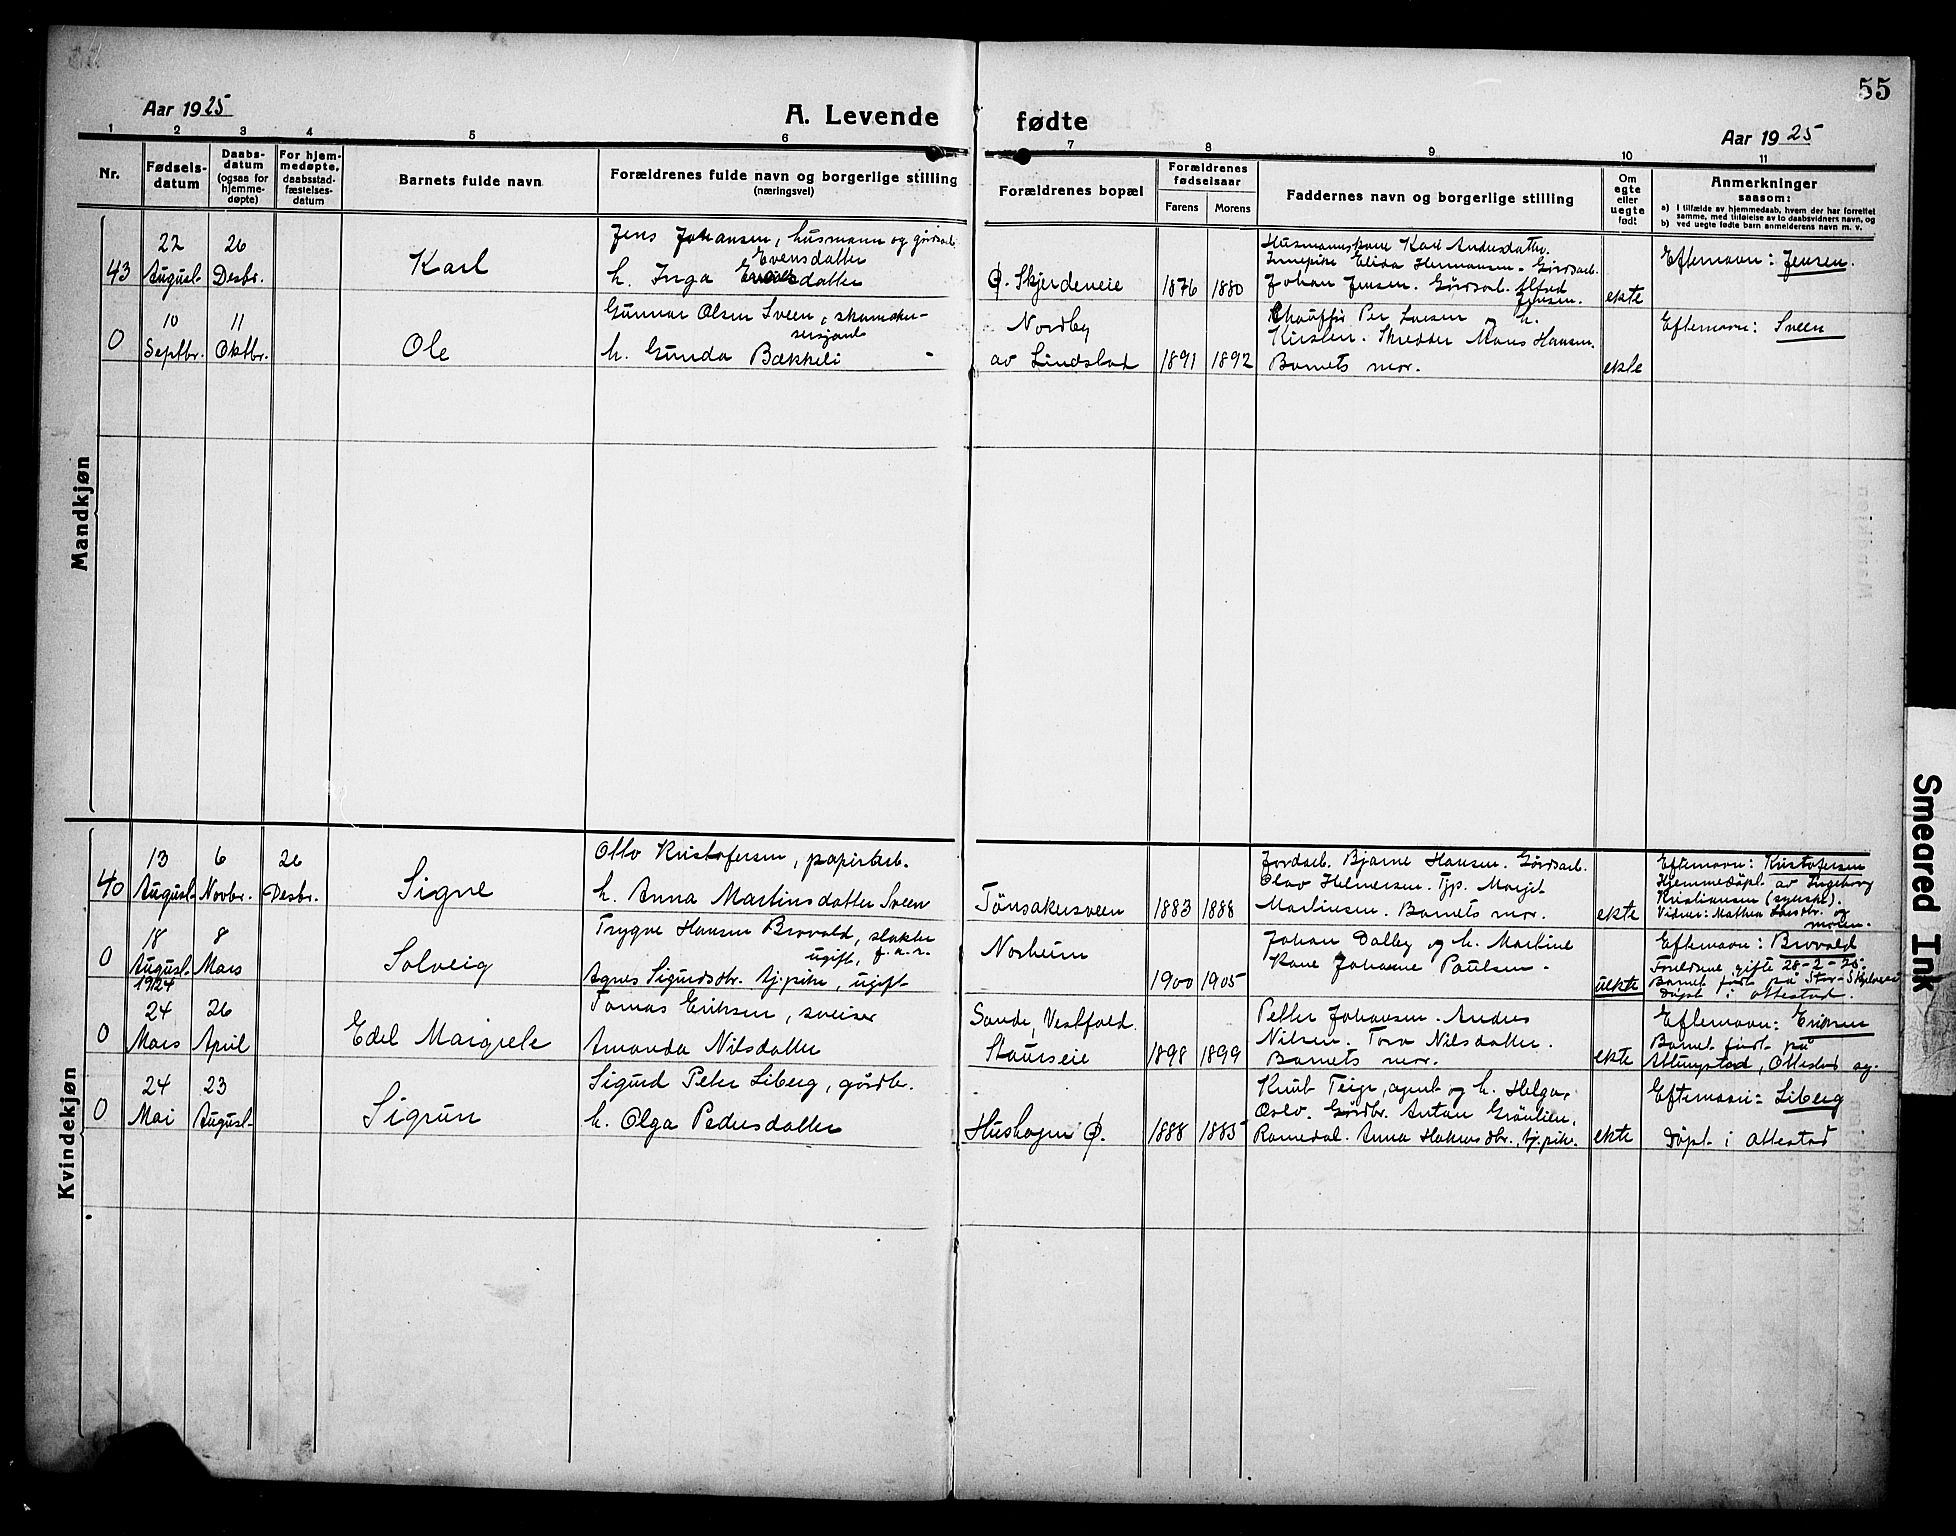 55
Aar 1925
A. Levende fødte
Aar 1925
1 2 3 4 5 6 7 8 9 10 11
Nr.
Fødsels-
datum
Daabs-
datum
(ogsaa for
hjemme-
døpte)
For hjem-
medøpte,
daabsstad-
fæstelses-
datum
Barnets fulde navn
Forældrenes fulde navn og borgerlige stilling
(næringsvei)
Forældrenes bopæl
Forældrenes
fødselsaar
Farens Morens
Faddernes navn og borgerlige stilling
Om
egte
eller
uegte
født
Anmerkninger
saasom:
a) I tilfælde av hjemmedaab, hvem der har forrettet
samme, med tilføielse av to daabsvidners navn, og
b) ved uegte fødte barn anmelderens navn m. v.
Mandkjøn
43
22
August
26
Desbr.
Karl
Jens Johansen, husmann og gårdsarb.
Evensdatter
h. Inga datter
Ø. Skjerdeneie
1876 1880
Husmannskone Kari Andersdatter.
Innepike Elida Hermansen. Gårdsarb.
Johan Jensen. Gårdsarb. Alfred
Jensen.
ekte
Efternavn: Jensen.
0
10
Septbr.
11
Oktbr.
Ole
Gunnar Olsen Sveen, skomaker-
sersjant
h. Gunda Bækkeli
Nordby
av Lindstad
1891 1892
Chauffør Per Larsen og h.
Kirsten. Skredder Hansen.
Barnets mor.
ekte
Efternavn: Sveen
Kvindekjøn
40
13
August
6
Novbr.
26
Desbr.
Signe
Otto Kristofersen, papirarb.
h. Anna Martinsdatter Sveen
Tønsakersveen
1883 1888
Jordarb. Bjarne Hansen. Gårdsarb.
Olav Helmersen. Tjp. Margit
Martinsen. Barnets mor.
ekte
Efternavn: Kristofersen
Hjemmedøpt av Ingeborg
Kristiansen (sykepl.).
Vidner: Mathea Larsdtr. og
moren.
0
18
August
1924
8
Mars
Solveig
Trygve Hansen Brovald, slakter
ugift, f.a.r.
Agnes Sigurdsdtr. tj.pike, ugift
Norheim
1900 1905
Johan Dalby og h. Martine
Kone Johanne Paulsen.
uekte
Efternavn: Brovald
Foreldrene gifte 28-2-25.
Barnet født på Stor-
Døpt i Ottestad.
0
24
Mars
26
April
Edel Margrete
Tomas Eriksen, sveiser
Amanda Nilsdatter
Sande, Vestfold.
Staurseie
1898 1899
Petter Johansen. Andres
Nilsen. Tora Nilsdatter.
Barnets mor.
ekte
Efternavn: Eriksen
Barnet født på
Attingstad, Ottestad sg.
0
24
Mai
23
August
Sigrun
Sigurd Peter Liberg, gårdbr.
h. Olga Pedersdatter
Hushagen Ø.
1888 1885
Knut Teige, agent og h. Helga,
Oslo. Gårdbr. Anton Grønlien,
Romedal. Anna Hokensdtr., tj.pike.
ekte
Efternavn: Liberg
Døpt i Ottestad
Smeared Ink